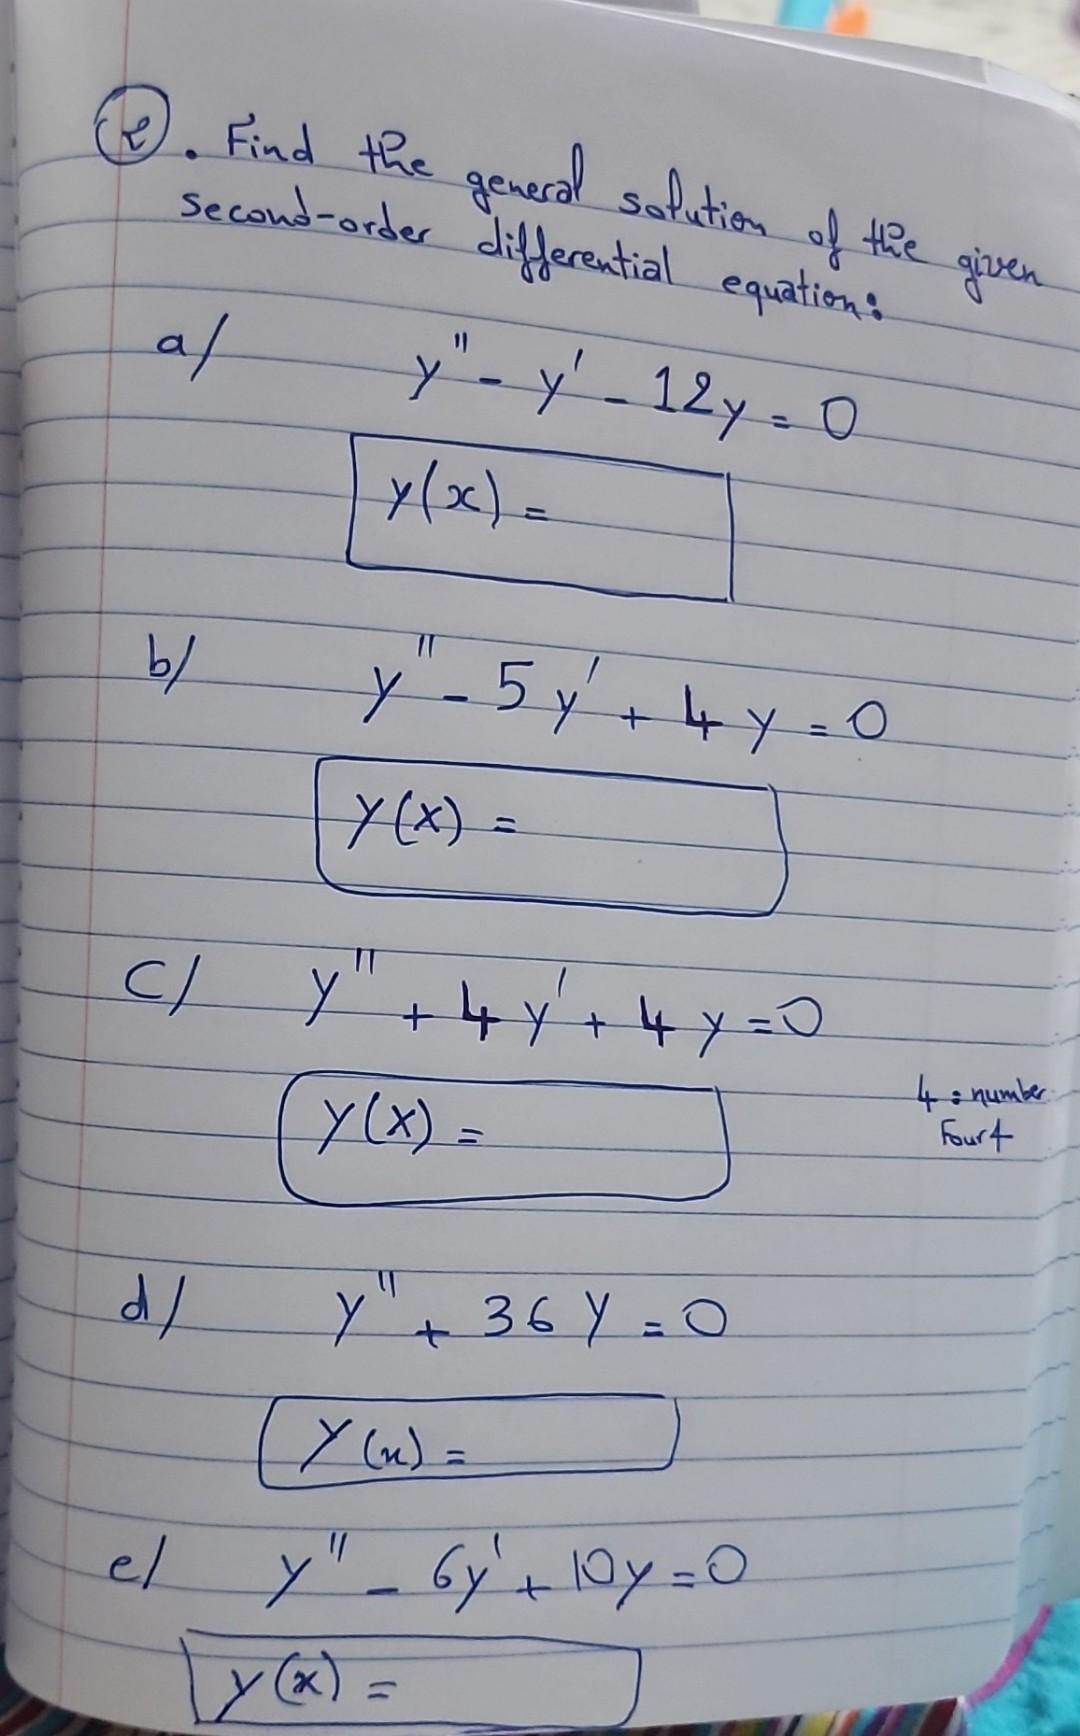 2. Find the general solution of the given
second-order differential equation:
a/ y" - y' - 12y = 0
y(x) =
b/ y" - 5y' + 4y = 0
y(x) =
c/ y" + 4y' + 4y = 0
4 : number
Four 4
y(x) =
d/ y" + 36y = 0
y(x) =
e/ y" - 6y' + 10y = 0
y(x) =